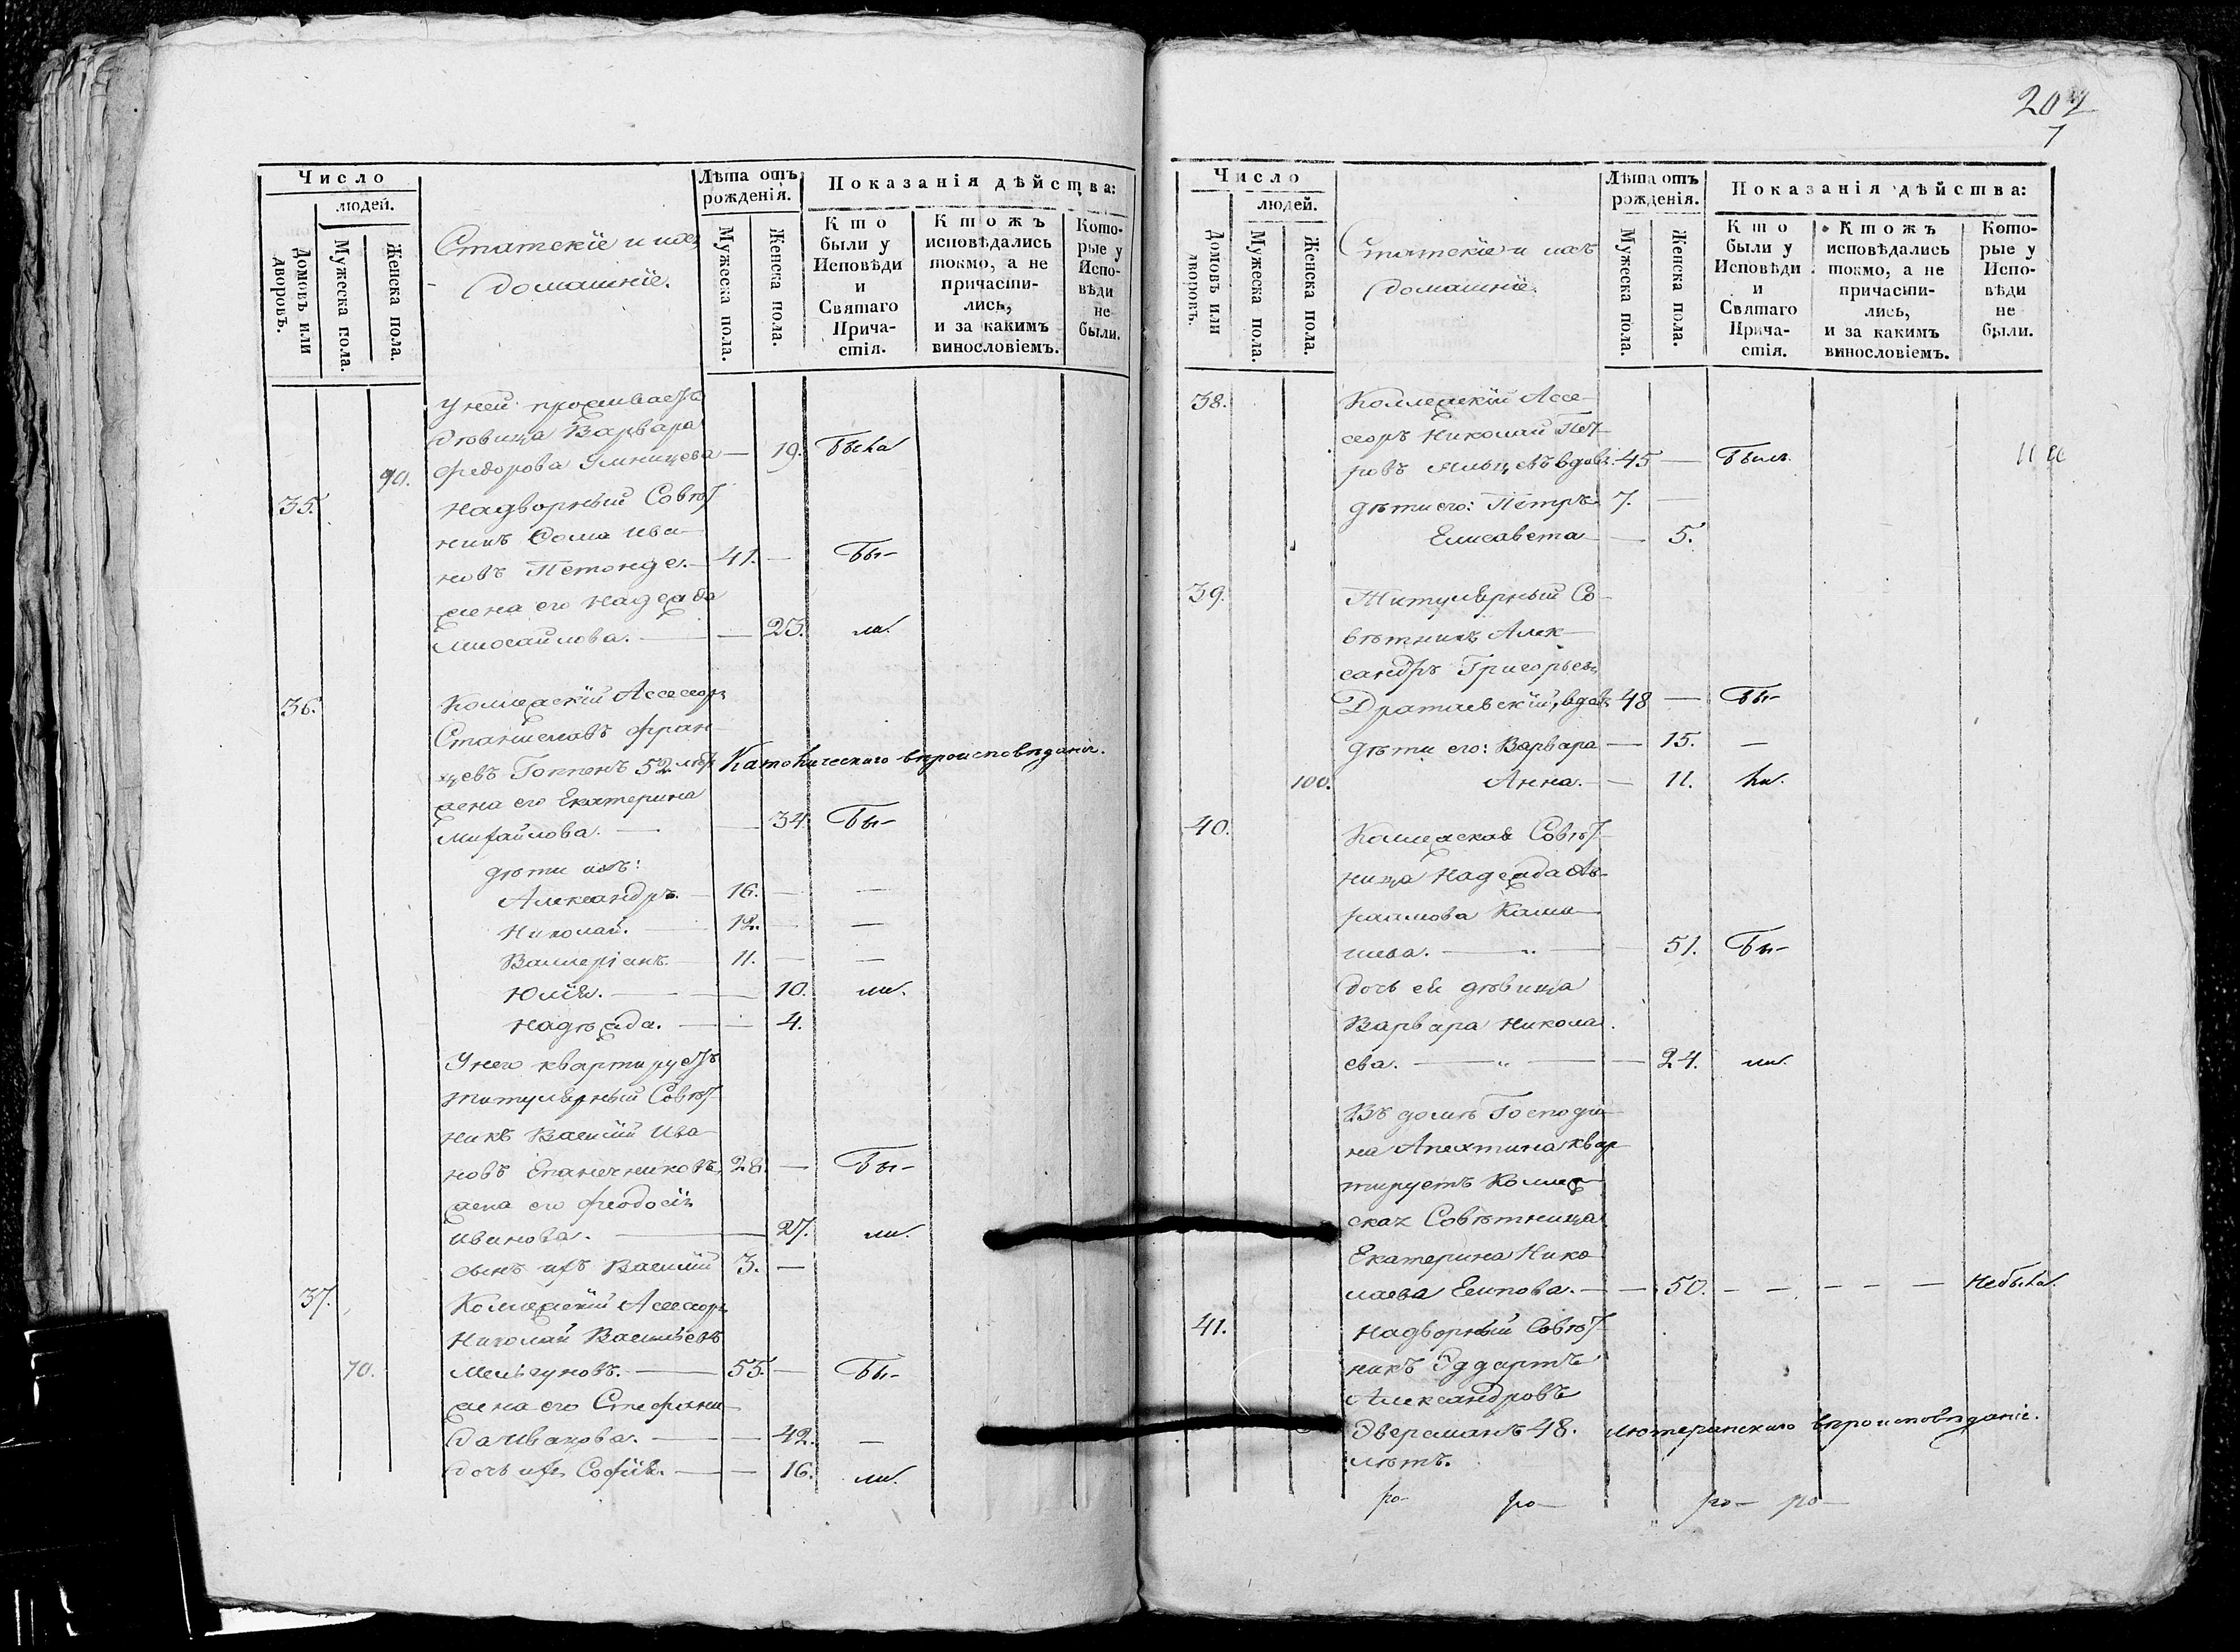 Число
людей.
Домовъ или дворовъ.
Мужеска пола.
Женска пола.
Статскіе и ихъ
домашніе.
Лѣта отъ
рожденія.
Мужеска пола.
Женска пола.
Показанія дѣйства:
Кто
были у
Исповѣди
и
Святаго
Прича-
стія.
Ктожъ
исповѣдались
токмо, а не
причасти-
лись,
и за какимъ
винословіемъ.
Кото-
рые у
Испо-
вѣди
не
были.
у ней проживаетъ
дѣвица Варвара
90. Федорова Умницева — 19. Была
35. Надворный Совѣт
никъ Сома Ива
новъ Петонде. — 41. — Бы-
жена его Надежда
Михайлова. — — 23. ли.
36. Коллежскій Ассесоръ
Станиславъ Фран
цевъ Гоппенъ 52 лѣт Католическаго вѣроисповѣданія.
жена его Екатерина
Михайлова. — — 34. Бы-
дѣти ихъ:
Александръ. — 16. — —
Николай. — 12. — —
Валлеріанъ. 11. — —
Юлія. — — 10. ли.
Надежда. — — 4.
У него квартируетъ
титулярный Совѣт
никъ Василій Ива
новъ Епанечниковъ, 28. — Бы-
жена его Феодосія
Иванова. — 27. ли.
сынъ ихъ Василій 3. —
37. Коллежскій Ассесоръ
Николай Васильевъ
70. Мельгуновъ. — 55. — Бы-
жена его Стефани
да Иванова. — — 42. —
дочь ихъ Софія. — — 16. ли.
207
7
Число
людей.
Домовъ или дворовъ.
Мужеска пола.
Женска пола.
Статскіе и ихъ
домашніе.
Лѣта отъ
рожденія.
Мужеска пола.
Женска пола.
Показанія дѣйства:
Кто
были у
Исповѣди
и
Святаго
Прича-
стія.
Ктожъ
исповѣдались
токмо, а не
причасти-
лись,
и за какимъ
винословіемъ.
Кото-
рые у
Испо-
вѣди
не
были.
38. Коллежскій Ассе-
соръ Николай Пет-
ровъ вдовъ. 45 — Былъ.
дѣти его: Петръ 7. —
Елисавета — — 5.
39. Титулярный Со-
вѣтникъ Алек-
сандръ Григорьевъ
Дратаевскій, вдовъ 48 — Бы-
дѣти его: Варвара — 15. —
100. Анна. — — 11. ли.
40. Коллежская Совѣт-
ница Надежда Ав-
раамова Каши-
 — 51. Бы-
дочь ея дѣвица
Варвара Никола
ева. — — 24. ли.
Въ домѣ Господи-
на Апехтина квар
тируетъ Коллеж-
ская Совѣтница
Екатерина Нико
лаева Еипова. — — 50. — — — — Небыла.
41. Надворный Совѣт-
никъ Эддартъ
Александровъ
Эверсманъ 48. лютеранскаго вѣроисповѣданіе.
лѣтъ.